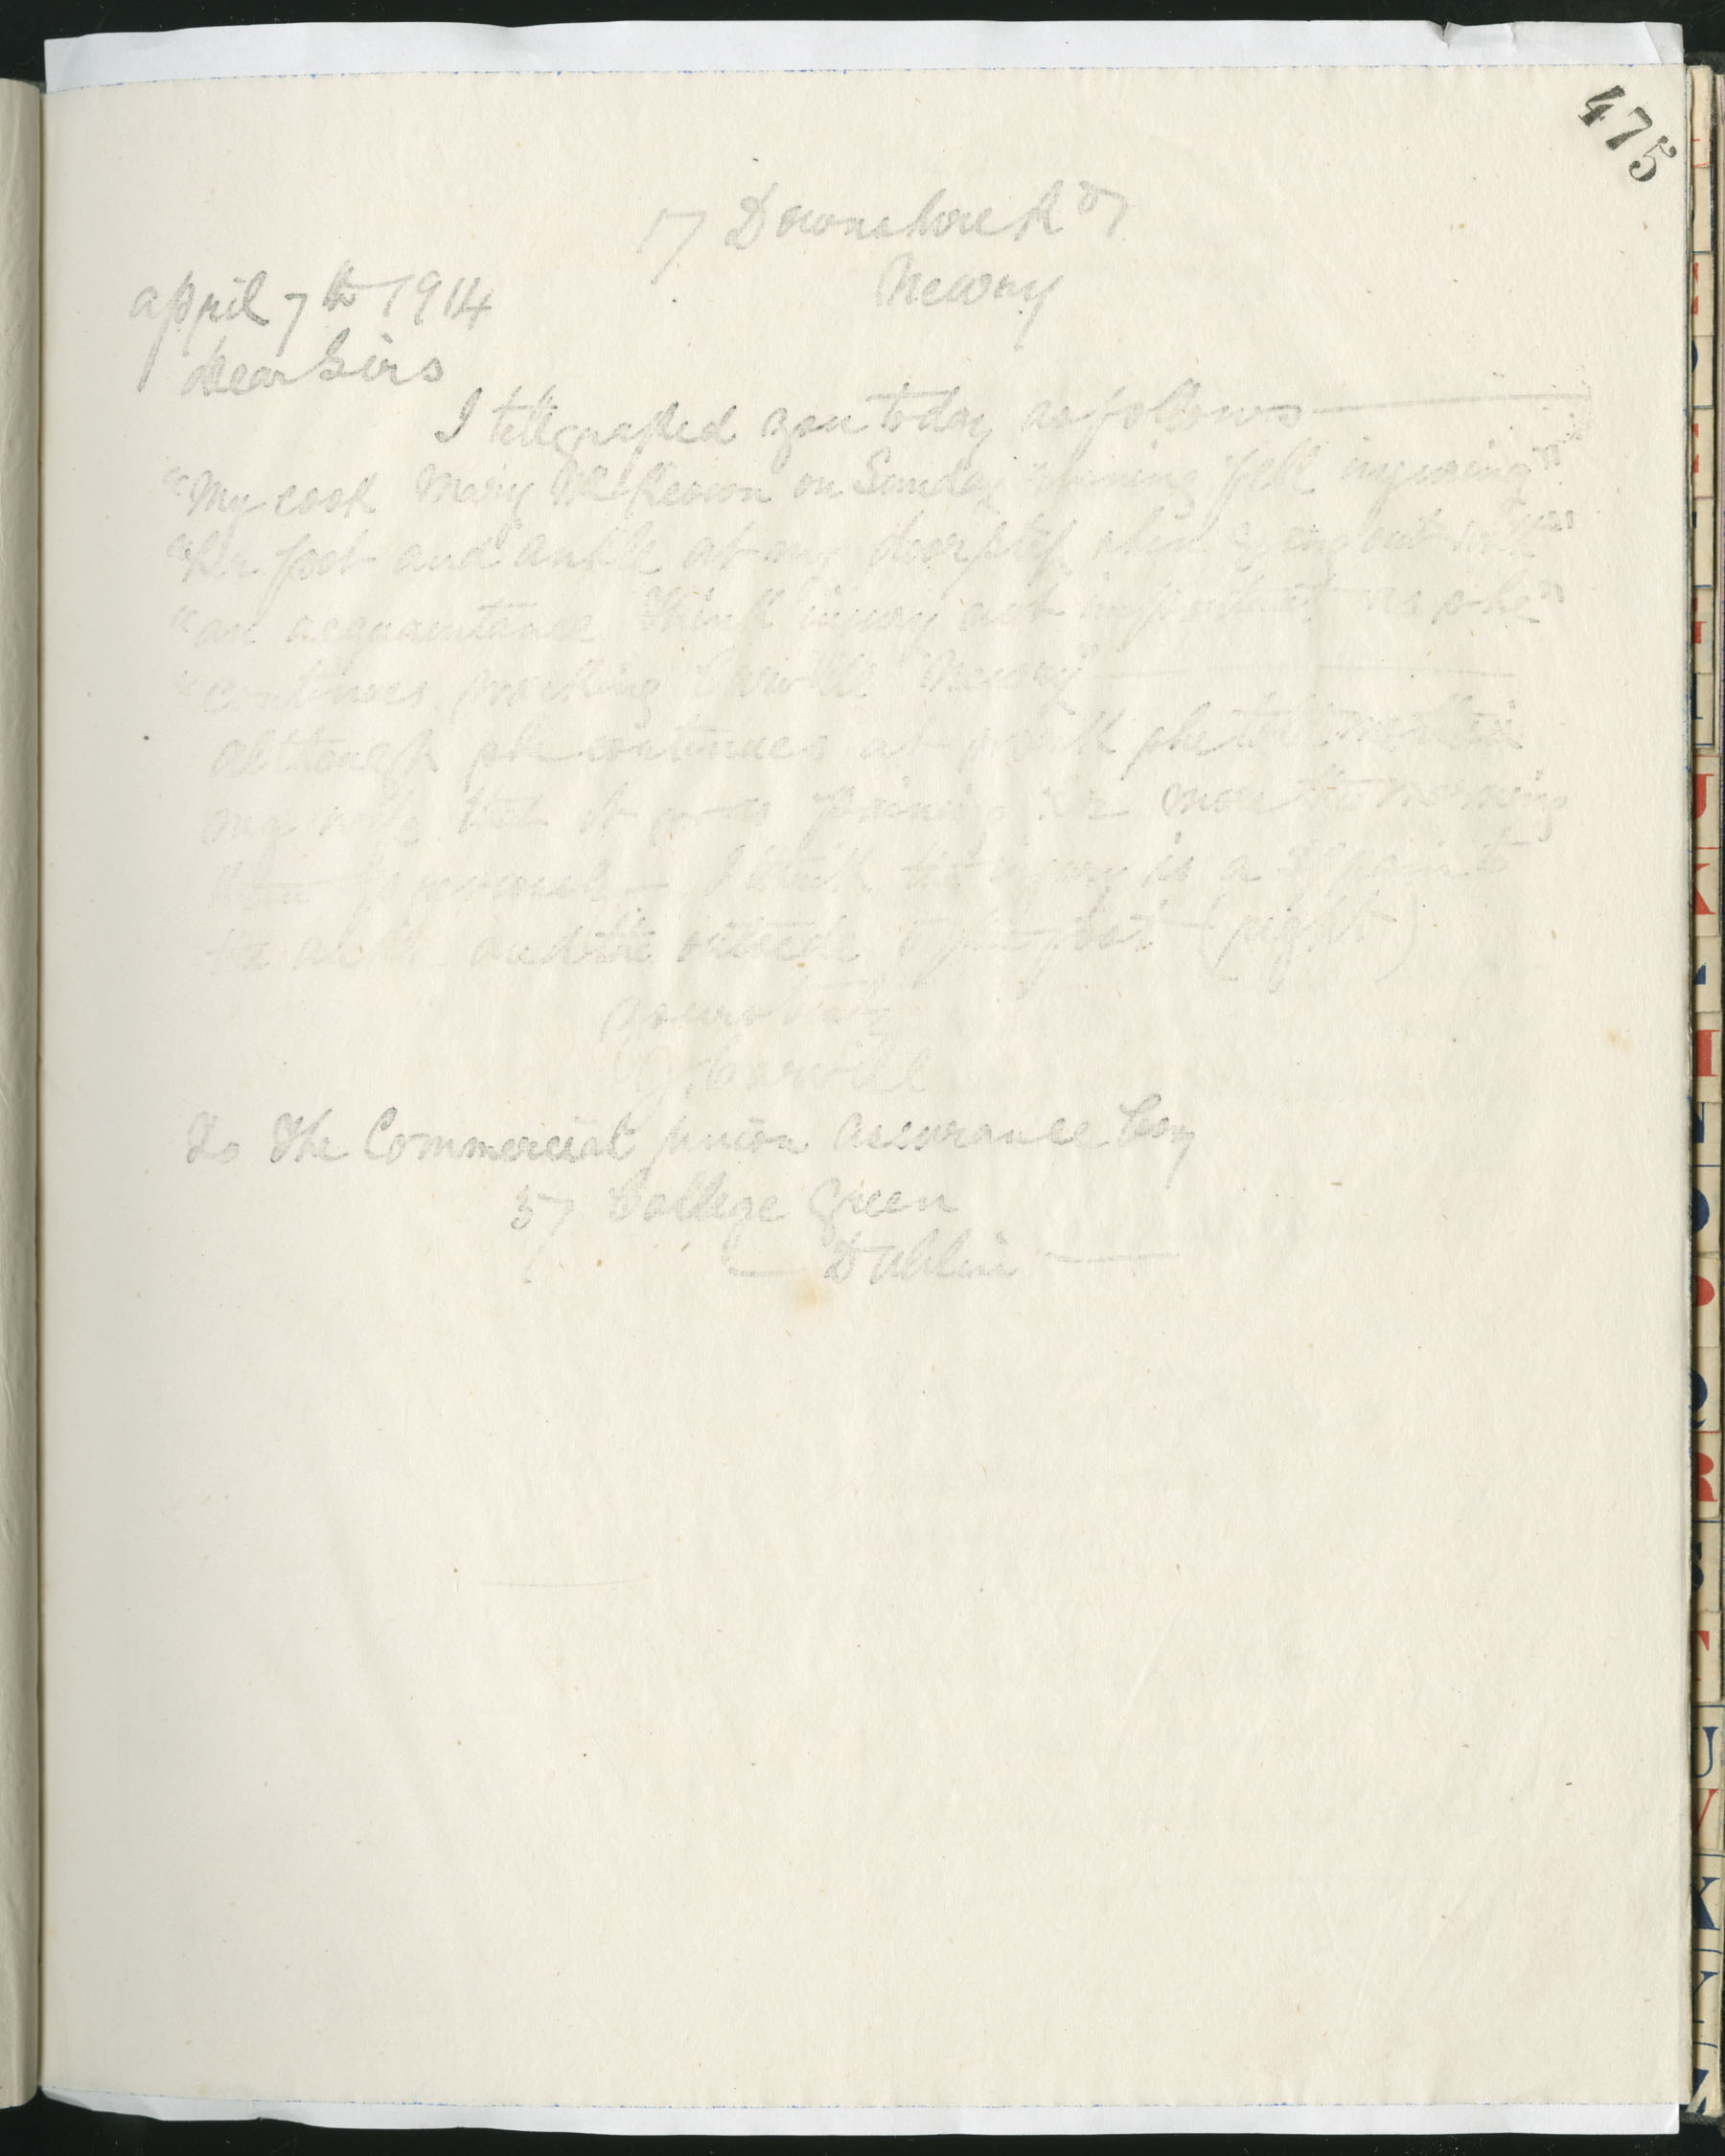 475
17 Downshire Rd
Newry
April 7th 1914
Dear Sirs
I telegraphed you today as follows
"My cook Mary McKeown on Sunday evening fell injuring"
"her foot and ankle at my doorstep when going out with"
"an acquaintance Think injury not important as she"
"continues working Carvill Newry"
Although she continues at work she told
my wife that it was paining her more this morning
than previously – I think the injury is a sprain to
the ankle and the outside of foot (right)
Yours truly
Carvill
To The Commercial Union Assurance Coy
37 College Green
Dublin